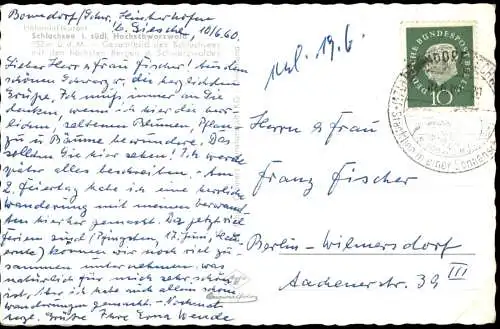 Bonndorf/Schw., Hinterhöfen
b. Giesche, 10/6.60.
Heilklimatischer Kurort
Schluchsee i. südl. Hochschwarzwald
952 m ü. d. M. Gesamtbild des Schluchsees
mit den höchsten Bergen d. Schwarzwaldes
Lieber Herr u. Frau Fischer! Aus dem
schönen Schwarzw. die herzlichsten
Grüße. Ich muß immer an Sie
denken, wenn ich hier die herr-
lichen, seltenen Blumen, Pflan-
zen u. Bäume bewundere. Das
sollten Sie hier sehen! Ich werde
später alles beschreiben. Am
2. Feiertag habe ich eine herrliche
Wanderung mit meinen Verwand-
ten hier gemacht. Da jetzt viel
Ferien sind (Pfingsten, 17. Juni, Heu-
ernte) können wir noch viel zu-
sammen unternehmen, was
natürlich für mich sehr schön
ist. Aber ich habe auch allein schöne
Wanderungen gemacht. Nochmals
Grüße Ihre Erna Wende
erl. 19.6.
DEUTSCHE BUNDESPOST BERLIN
10
Herrn u. Frau
Franz Fischer
Berlin-Wilmersdorf
Aachenerstr. 39 III